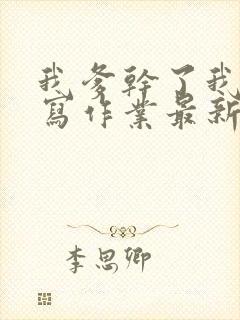 我爹幹了我
寫作業最新
李思卿